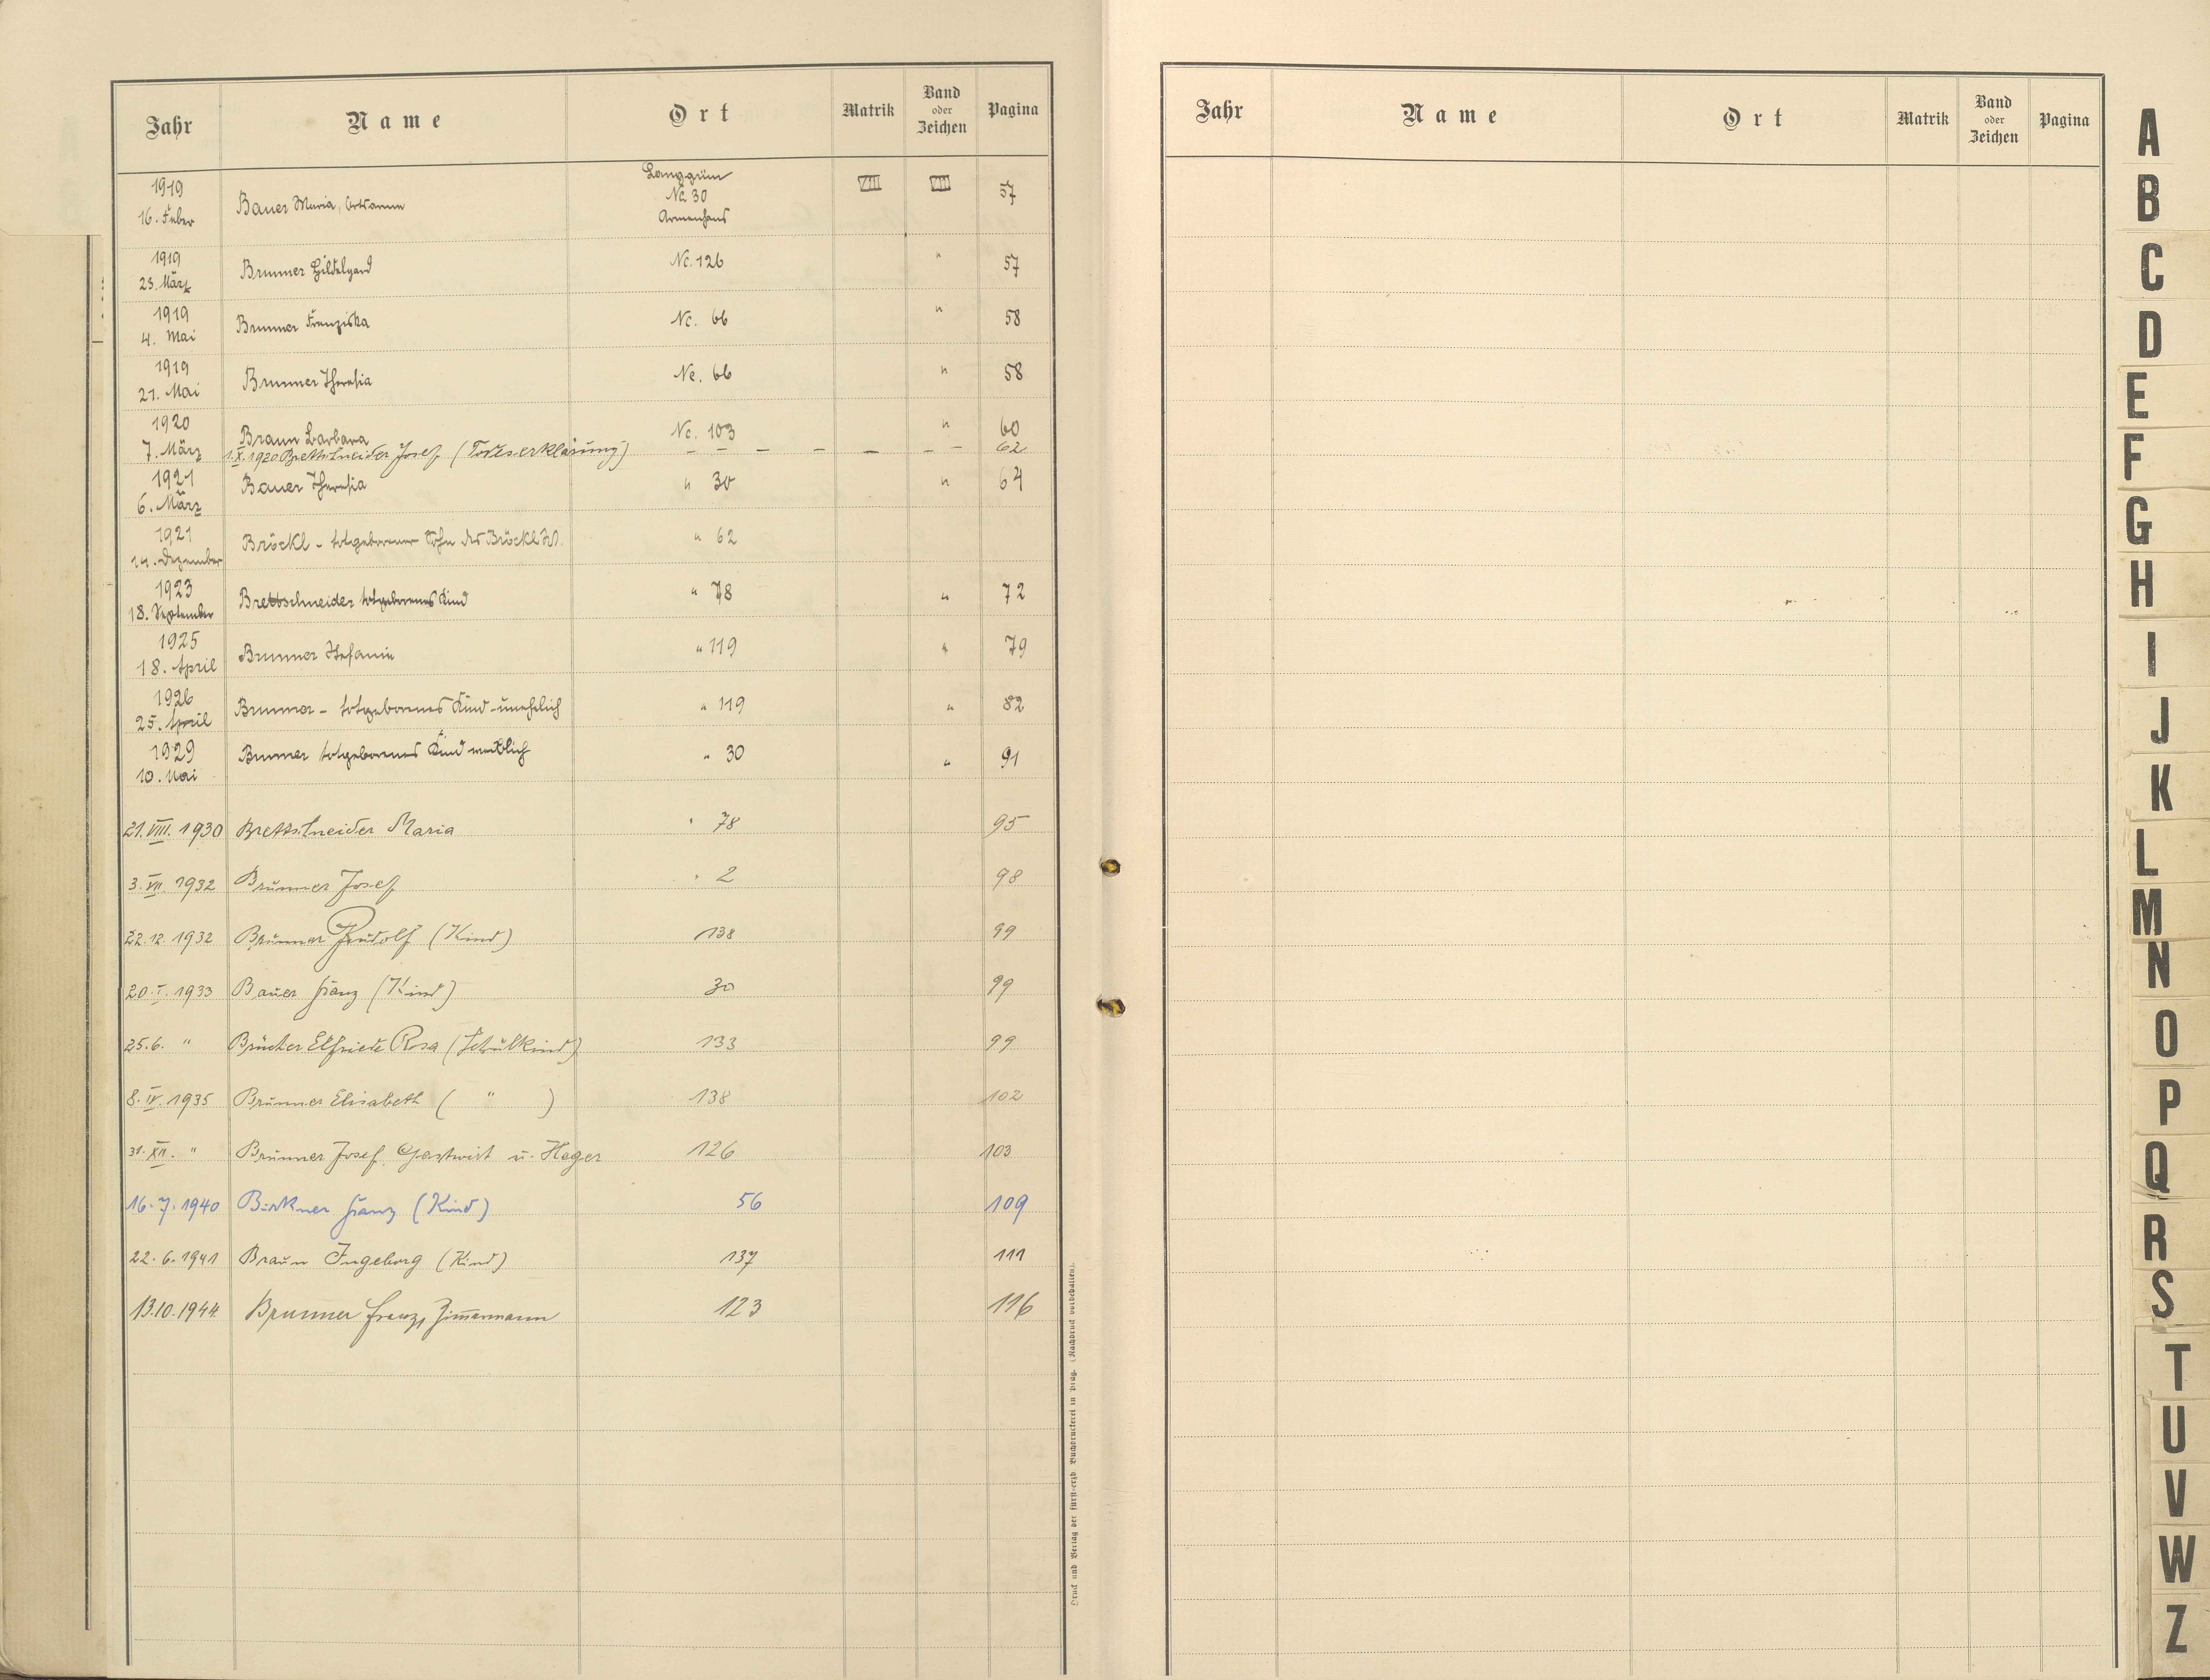 Jahr Name Ort Matrik Band oder Zeichen Pagina
1919 16. Feber Bauer Maria, Ortsarme Langgrün Nc. 30 Armenhaus VIII VIII 57
1919 23. März Brunner Hildegard Nc. 126 " 57
1919 4. Mai Brunner Franziska Nc. 66 " 58
1919 21. Mai Brunner Theresia Nc. 66 " 58
1920 7. März Braun Barbara Nc. 103 " 60
1.X.1920 Brettschneider Josef (Todeserklärung) – – – – – – – 62
1921 6. März Bauer Theresia " 30 " 64
1921 14. Dezember Bröckl - totgeborener Sohn des Bröckl " 62
1923 18. September Brettschneider totgeborenes Kind " 78 " 72
1925 18. April Brunner Stefanie " 119 " 79
1926 25. April Brunner - totgeborenes Kind - unehelich " 119 " 82
1929 10. Mai Brunner totgeborenes Kind weiblich " 30 " 91
21. VIII. 1930 Brettschneider Maria " 78 95
3. VII. 1932 Brunner Josef " 2 98
22.12. 1932 Brunner Rudolf (Kind) 138 99
20. I. 1933 Bauer Franz (Kind) 30 99
25.6. " Brücher Elfriede Rosa (Schulkind) 133 99
8. IV. 1935 Brunner Elisabeth ( " ) 138 102
31. XII. " Brunner Josef, Gastwirt u. Heger 126 103
16. 7. 1940 Birkner Franz (Kind) 56 109
22. 6. 1941 Braun Ingeborg (Kind) 137 111
13.10.1944 Brunner Franz, Zimmermann 123 116
Druck und Verlag der fürst-erzb. Buchdruckerei in Prag. (Nachdruck vorbehalten).
Jahr Name Ort Matrik Band oder Zeichen Pagina
A
B
C
D
E
F
G
H
I
J
K
L
M
N
O
P
Q
R
S
T
U
V
W
Z